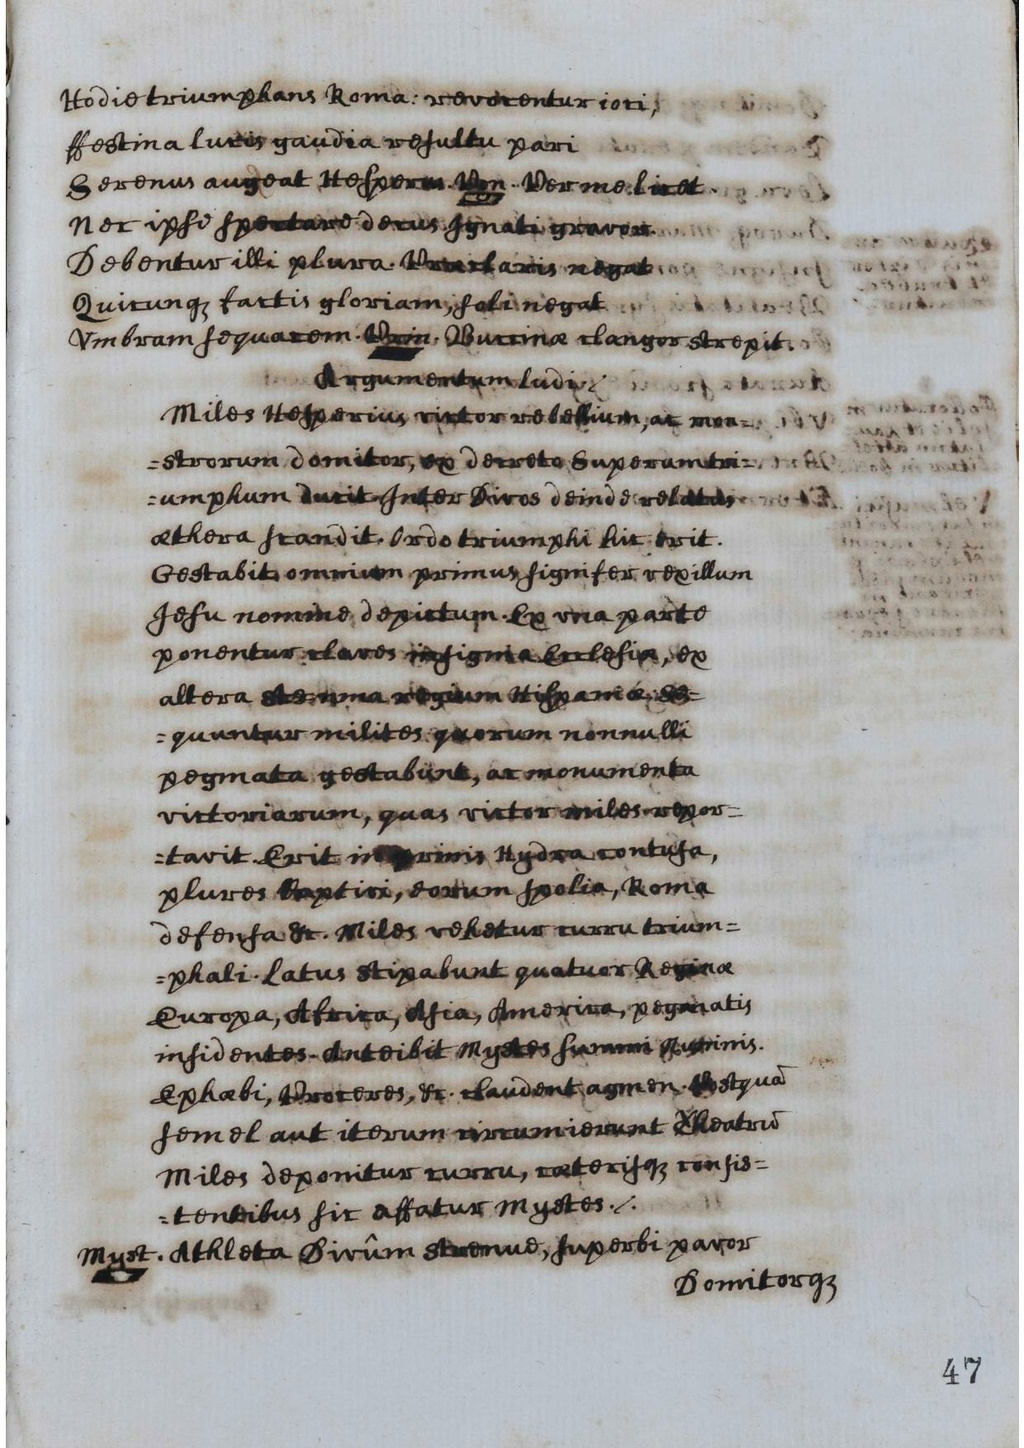 Hodie triumphans Roma: revocentur ioci,
ffestina lucis gaudia resultu pari
Serenus augeat Hesperus. Pon. Per me licet
Nec ipse spectare decus Ignati gravor.
Debentur illi plura. Praeclaris negat
Quicunqȝ factis gloriam, soli negat
Vmbram sequacem. Prin. Buccinæ clangor strepit.
Argumentum ludi ⁒
Miles Hesperius victor rebellium, ac mon=
=strorum domitor, ex decreto Superum tri=
=umphum ducit. Inter Divos deinde relatus
æthera scandit. Ordo triumphi hic erit.
Gestabit omnium primus signifer vexillum
Jesu nomine depictum. Ex vna parte
ponentur claves insignia Ecclesiæ, ex
altera stemma regium Hispaniæ. Se=
=quuntur milites quorum nonnulli
pegmata gestabunt, ac monumenta
victoriarum, quas victor miles repor=
=tavit. Erit in primis Hydra contusa,
plures Captivi, eorum spolia, Roma
defensa &c. Miles vehetur curru trium=
=phali. Latus stipabunt quatuor Reginæ
Europa, Africa, Asia, America, pegmatis
insidentes. Anteibit Mystes summi Numinis.
Ephæbi, Proceres, &c. claudent agmen. Postquã
semel aut iterum circumierunt Theatrũ
Miles deponitur curru, cæterisqȝ consis=
=tentibus sic affatur Mystes. ⁒
Myst. Athleta Divûm strenue, superbi pavor
Domitorqȝ
47